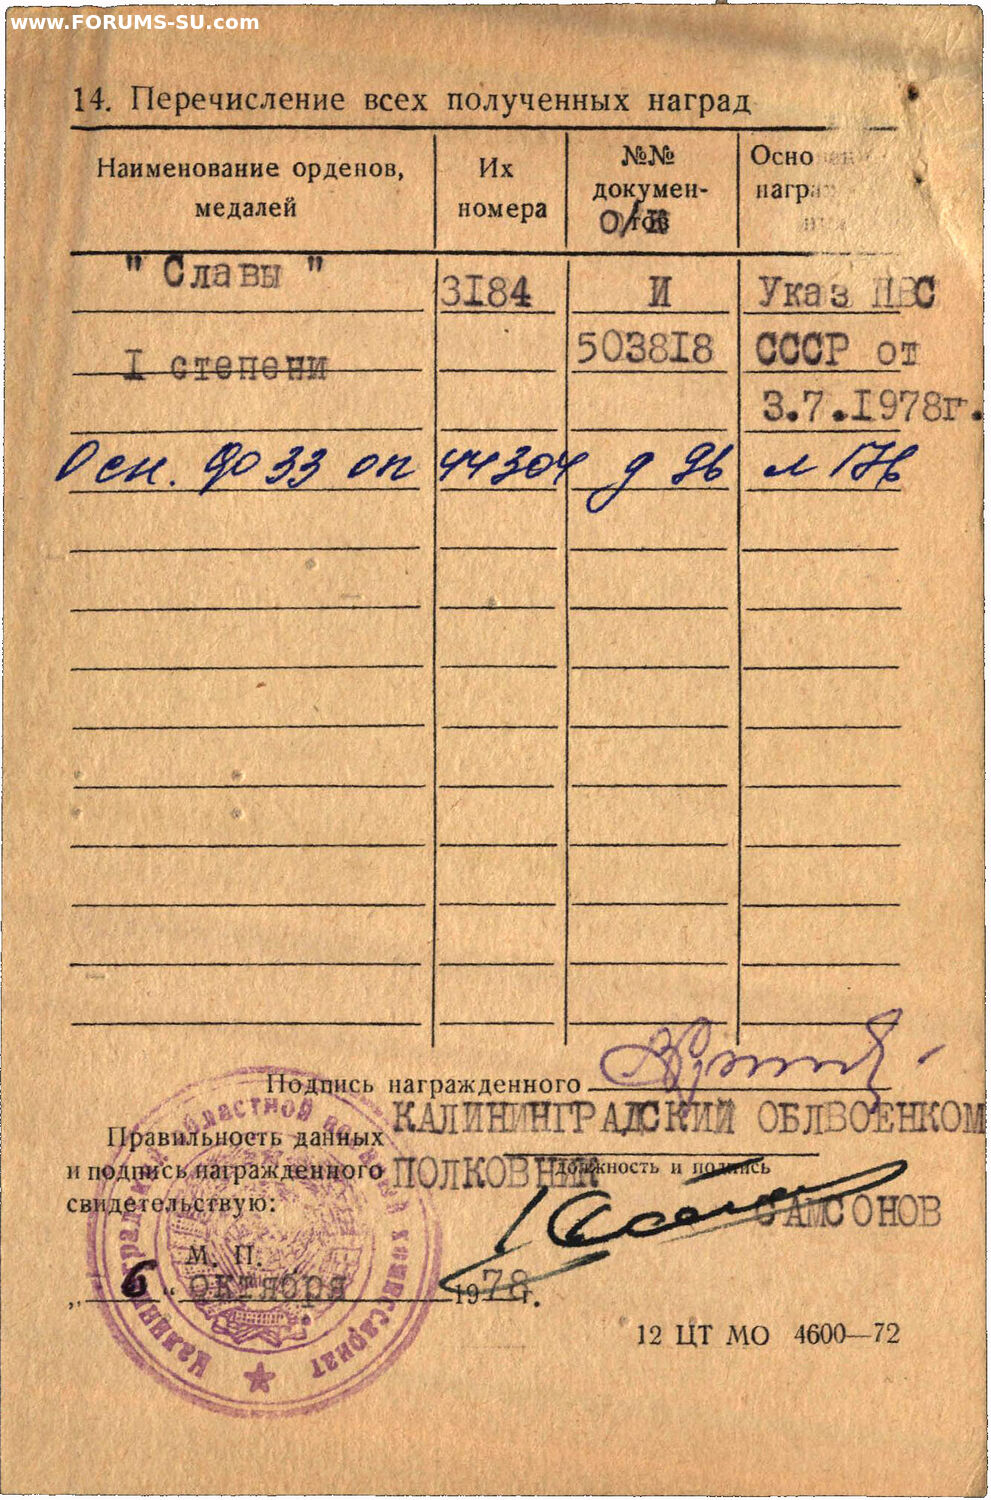 www.FORUMS-SU.com
14. Перечисление всех полученных наград
Наименование орденов, медалей
Их номера
№№ докумен-тов
о/к
Осно
награ
" Славы "
3I84
И
Указ ПВС
I степени
503818
СССР от
3.7.I978г.
Осн. Ф 33 оп 44304 д 96 л 176
Подпись награжденного
КАЛИНИНГРАДСКИЙ ОБЛВОЕНКОМ
Правильность данных
и подпись награжденного
свидетельствую:
ПОЛКОВНИК
должность и подпись
САМСОНОВ
М. П.
„ 6 “ октября 1978г.
12 ЦТ МО 4600—72